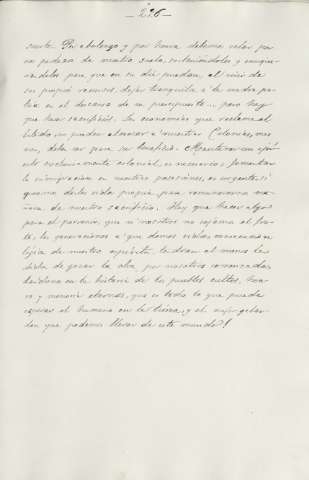 — 296 —
cuerto. Por abolengo y por honra debemos velar por
no pedazos de nuestro suelo, sosteniéndoles y enrique-
ciéndoles para que en su día puedan, al vivir de
sus propios recursos, dejar tranquila á la madre pa-
tria en el descanso de su presupuesto... pero hay
que hacer sacrificios. Las economías que reclama el
Estado no pueden alcanzar á nuestras Colonias, mas
sea, debe ser para su beneficio. Reclutar un ejér-
cito exclusivamente colonial, es necesario; fomentar
la inmigración en nuestras posesiones, es urgente, si
queremos darles vida propia, para remunerarnos ma-
ñana de nuestro sacrificio. Hay que hacer algo
para el porvenir, que si nosotros no cojemos el fru-
to, las generaciones á que damos vida
de nuestro espíritu, le dean al menos la
dicha de gozar la obra por nosotros comenzada,
dándonos en la historia de los pueblos cultos, hon-
ra y memoria eternas, que es todo lo que puede
esperar el humano en la tierra, y el mejor galar-
don que podemos llevar de este mundo!